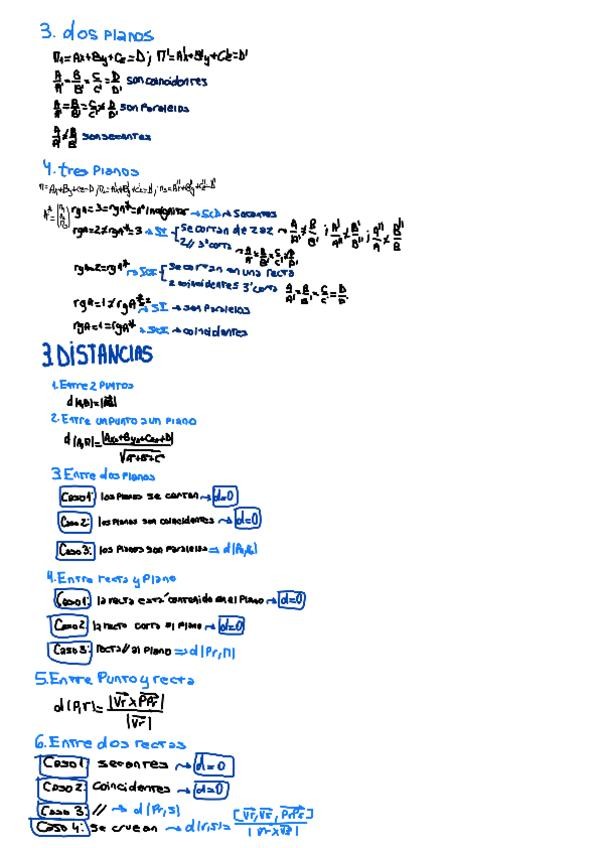 3. dos Planos
Π₁=Ax+By+Cz=D; Π'=A'x+B'y+C'z=D'
A/A' = B/B' = C/C' = D/D' son coincidentes
A/A' = B/B' = C/C' ≠ D/D' son Paralelos
A/A' ≠ B/B' son secantes
4. tres Planos
rgA=3=rgA*=nº incógnitas → SCD → Secantes
rgA=2≠rgA*=3 → SI { Se cortan de 2 a 2 → A/A' ≠ B/B' ; A'/A'' ≠ B'/B'' ; A''/A ≠ B''/B
2 // 3º corta → A/A' = B/B' = C/C' ≠ D/D'
rgA=2=rgA* → SCI { Se cortan en una recta
2 coincidentes 3º corta A/A' = B/B' = C/C' = D/D'
rgA=1≠rgA*=2 → SI → son Paralelos
rgA=1=rgA* → SCI → coincidentes
3. DISTANCIAS
1. Entre 2 Puntos
d(A,B)=|AB|
2. Entre un punto a un Plano
3. Entre dos Planos
Caso 1: los Planos se cortan → d=0
Caso 2: los Planos son coincidentes → d=0
Caso 3: los Planos son Paralelos ⇒
4. Entre recta y Plano
Caso 1: la recta está contenida en el Plano → d=0
Caso 2: la recta corta al Plano → d=0
Caso 3: recta // al Plano ⇒ d(Pr,Π)
5. Entre Punto y recta
d(P,r)= |Vr x PPr| / |Vr|
6. Entre dos rectas
Caso 1: secantes → d=0
Caso 2: coincidentes → d=0
Caso 3: // → d(Pr,s)
Caso 4: se cruzan → d(r,s)= [Vr,Vs,PrPs] / |Vr x Vs|